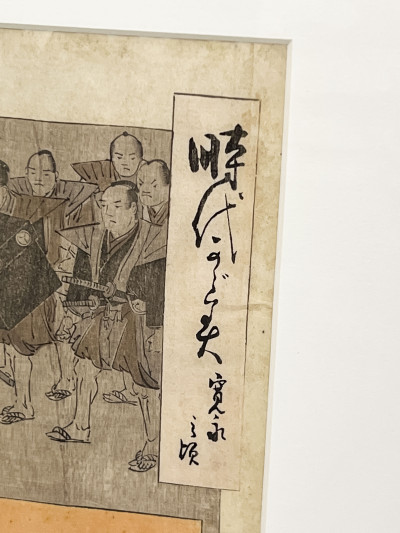 時代かゞ美
寛永之頃